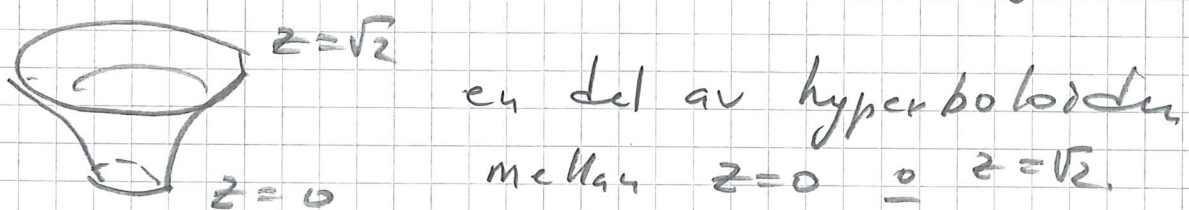 z = √2
en del av hyperboloiden
mellan z = 0 o z = √2.
z = 0